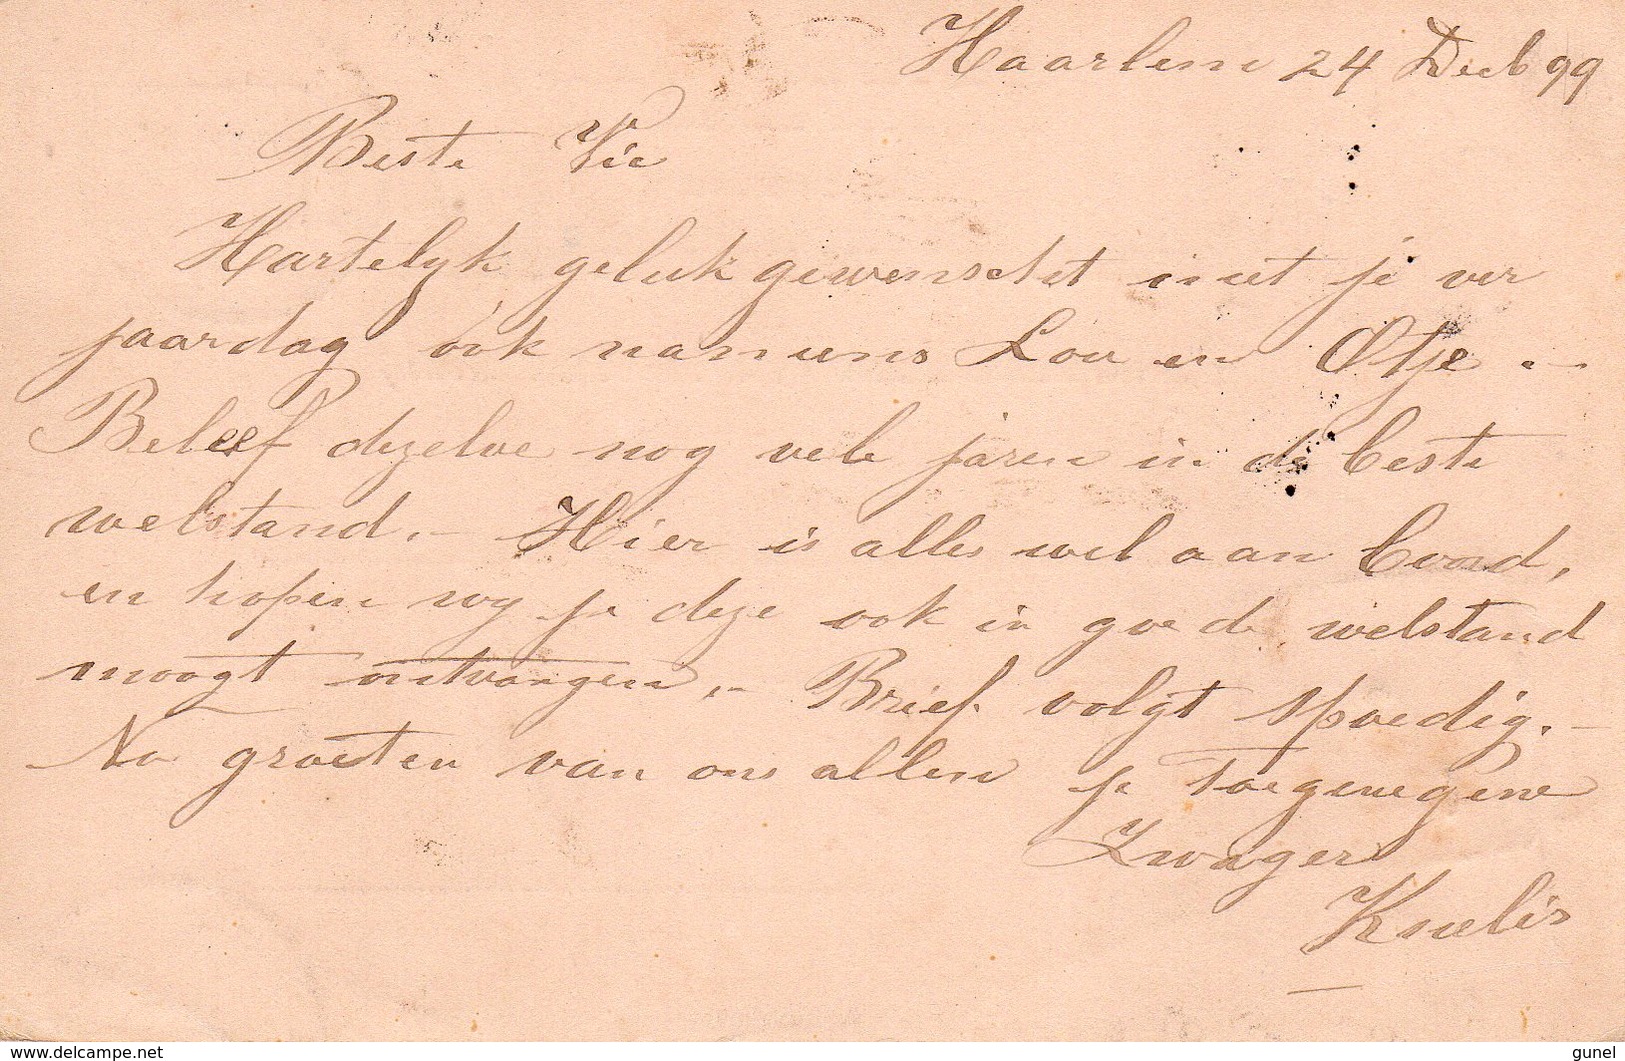 Haarlem 24 Decb 99
Beste Vic
Hartelyk geluk gewenscht met je ver
jaardag ook namens Lou en Otje . -
Beleef dezelve nog vele jaren in de beste
welstand . - Hier is alles wel aan boord ,
en hopen wy je deze ook in goede welstand
moogt ontvangen . - Brief volgt spoedig . -
Na groeten van ons allen je Toegenegene
Zwager
Knelis
www.delcampe.net
gunel